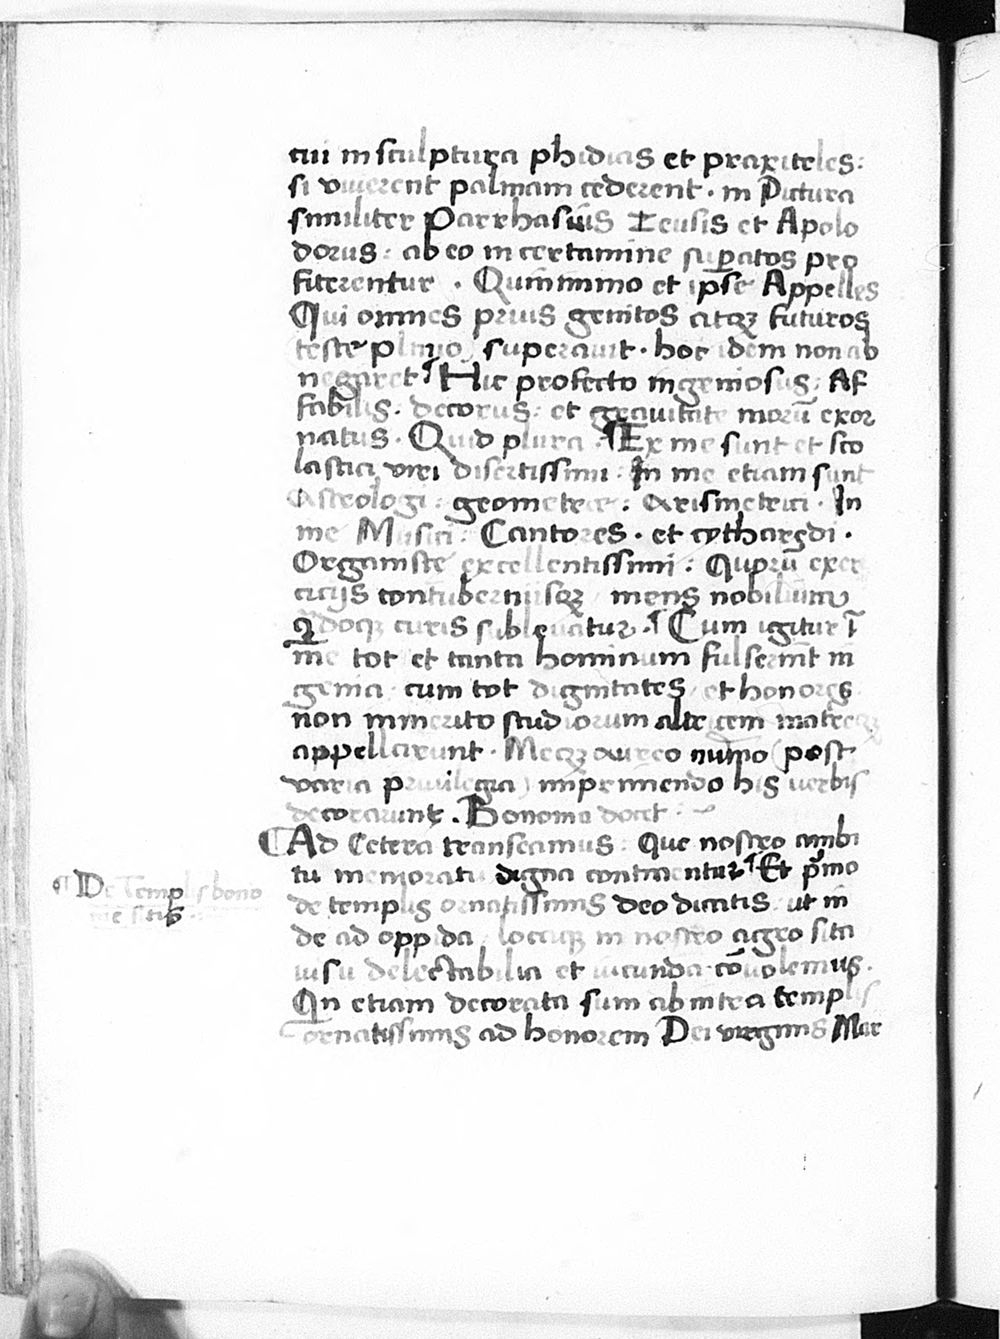 cui in sculptura phidias et praxiteles:
si viuerent palmam cederent · in Pictura
similiter Parrhasius Zeusis et Apolo
dorus: ab eo in certamine suꝑatos pro
fiterentur · Quinimmo et ipse Appelles
Qui omnes prius genitos atqꝫ futuros
teste plinio) superauit · hoc idem non ab
negaret ¶ Hic profecto ingeniosus: Af
fabilis: decorus: et grauitate morū exor
natus · Quid plura · ¶ Ex me sunt et sco
lastici viri disertissimi: In me etiam sunt
Astrologi: geometre: Arismetrici · In
me Musici: Cantores · et cytharedi ·
Organiste excellentissimi: Quorū exer
citijs contuberniisqꝫ mens nobilium
qn̄doqꝫ curis subleuatur ¶ Cum igitur ī
me tot et tanta hominum fulserint in
genia: cum tot dignitates et honores
non immerito studiorum altricem matreqꝫ
appellarunt · Meqꝫ aureo numo (post
varia priuilegia) imprimendo his verbis
decorarunt · Bononia docet ·
¶ Ad Cetera transeamus: Que nostro ambi
tu memoratu digna continentur ¶ Et pͥmo
de templis ornatissimis deo dicatis: ut in
de ad oppida locaqꝫ in nostro agro sita
uisu delectabilia et iucunda cōuolemus ·
Qn etiam decorata sum ab intra templis
ornatissimis ad honorem Dei virginis Mar
¶ De Templis bono
nie sitis ·